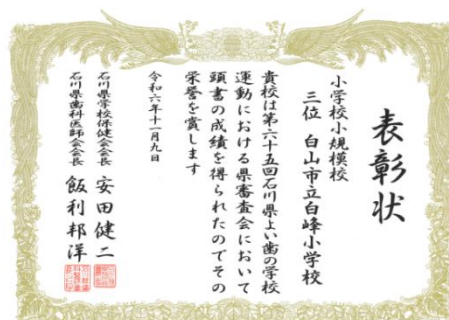 表彰状
小学校小規模校
三位 白山市立白峰小学校
貴校は第六十五回石川県よい歯の学校
運動における県審査会において
頭書の成績を得られたのでその
栄誉を賞します
令和六年十一月九日
石川県学校保健会会長 安田健二
石川県歯科医師会会長 飯利邦洋